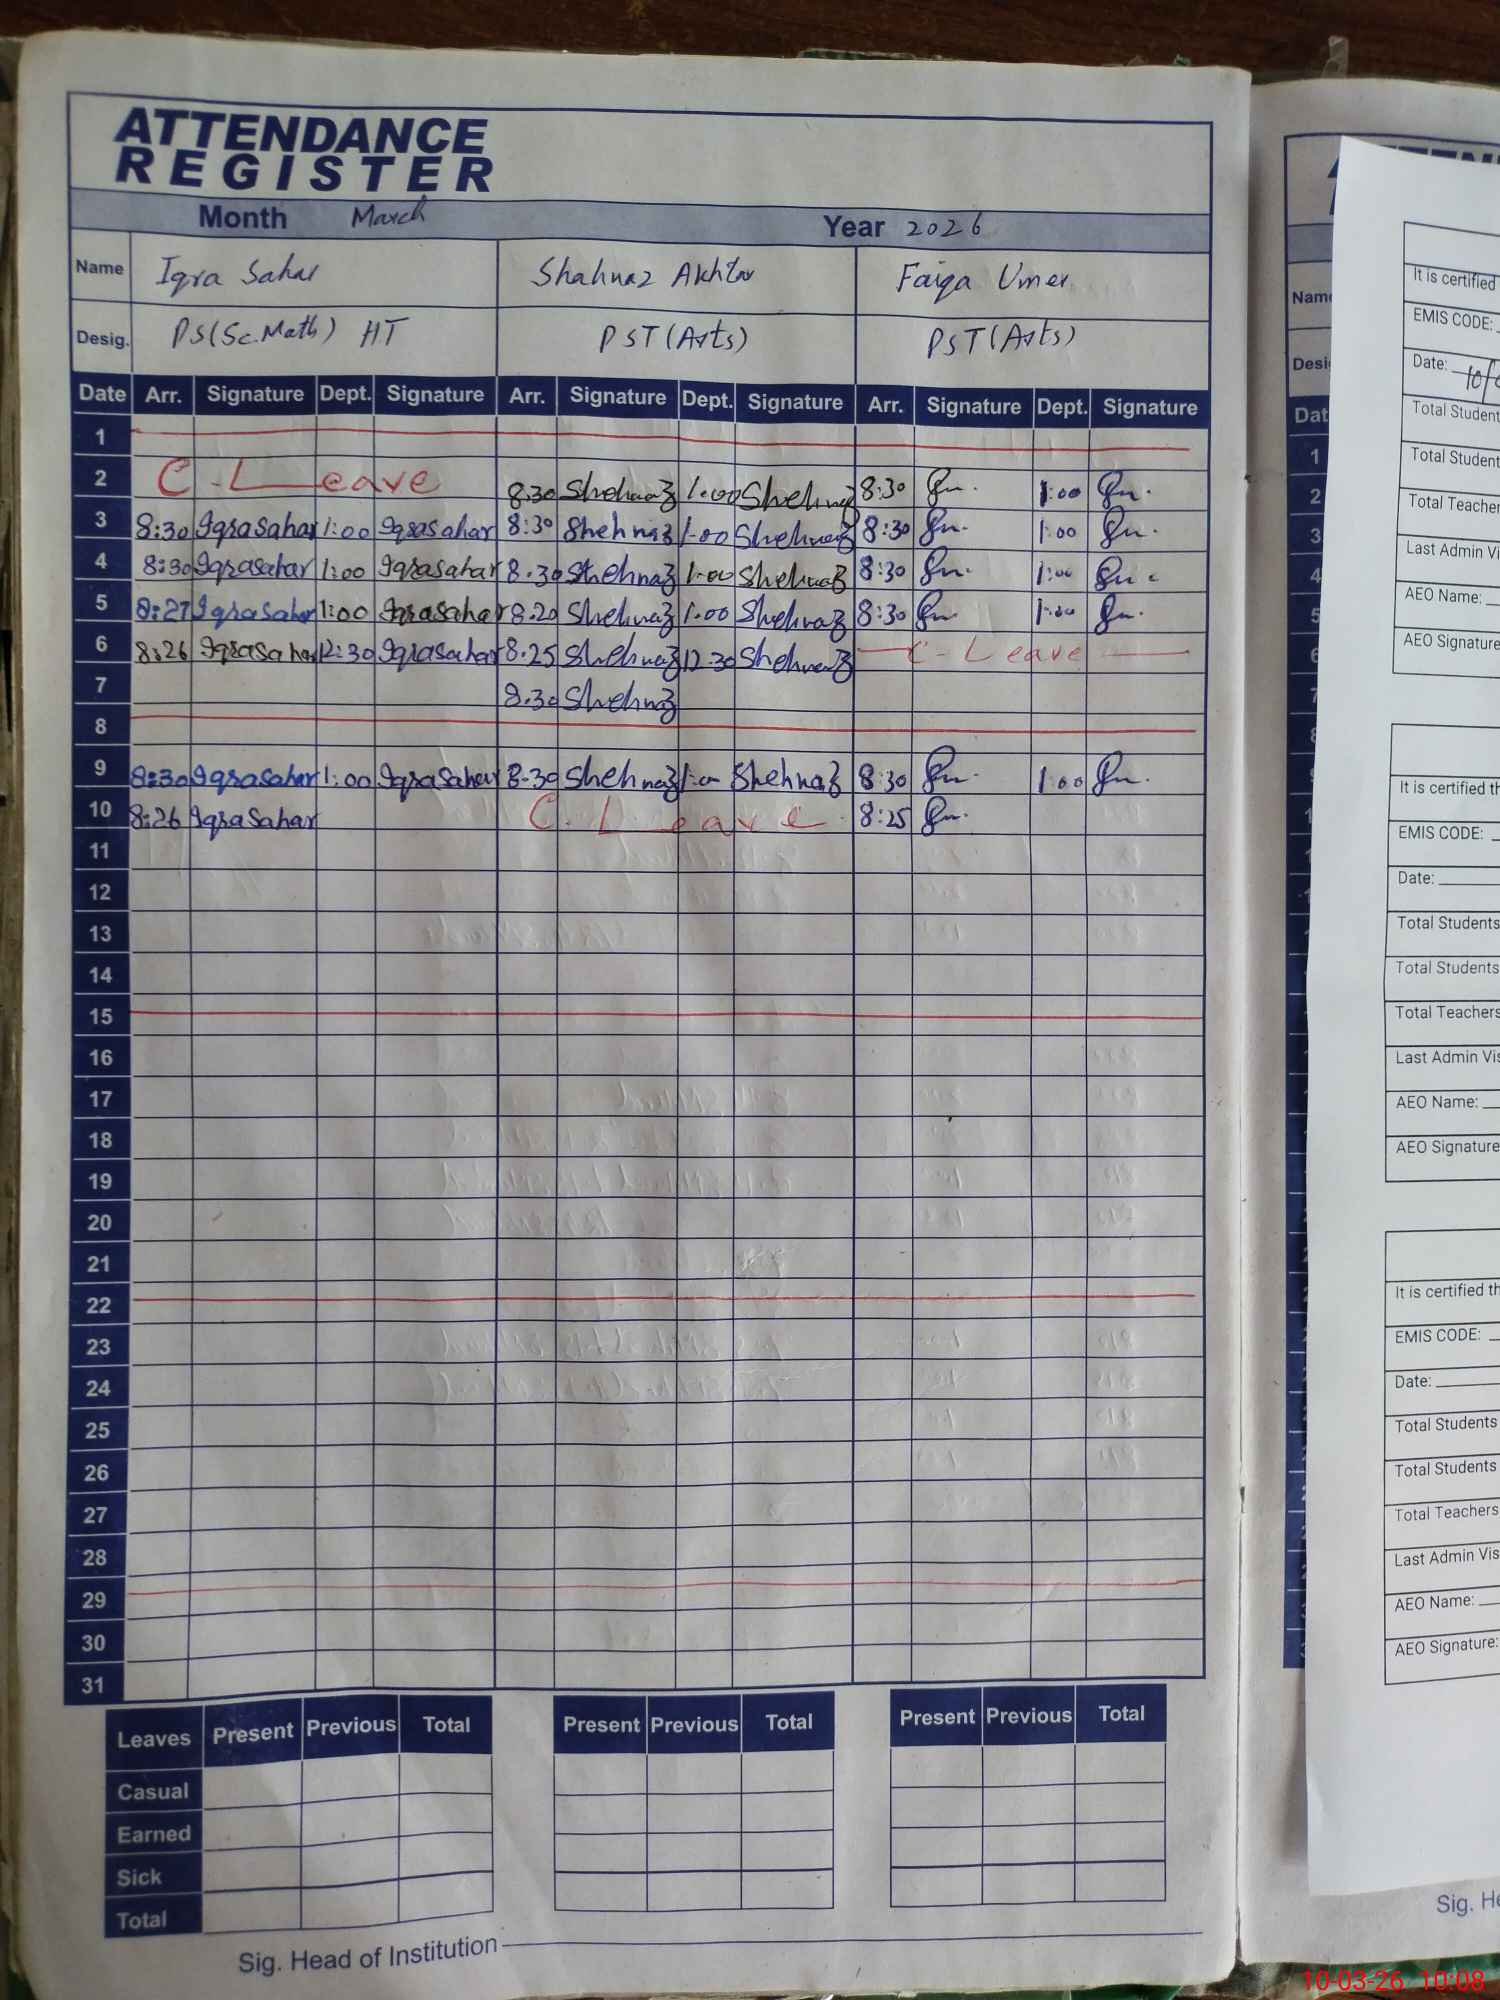 ATTENDANCE
REGISTER
Month March Year 2026
Name Iqra Sahar Shahnaz Akhtar Faiqa Umer
Desig. PS(Sc.Math) HT PST(Arts) PST(Arts)
Date Arr. Signature Dept. Signature Arr. Signature Dept. Signature Arr. Signature Dept. Signature
1
2 C-Leave 8.30 Shehnaz 1.00 Shehnaz 8:30 1:00
3 8:30 Iqrasahar 1:00 Iqrasahar 8:30 Shehnaz 1.00 Shehnaz 8:30 1:00
4 8:30 Iqrasahar 1:00 Iqrasahar 8.30 Shehnaz 1.00 Shehnaz 8:30 1:00
5 8:27 Iqrasahar 1:00 Iqrasahar 8.20 Shehnaz 1.00 Shehnaz 8:30 1:00
6 8:26 Iqrasahar 12:30 Iqrasahar 8.25 Shehnaz 12.30 Shehnaz C-Leave
7 8.30 Shehnaz
8
9 8:30 Iqrasahar 1:00 Iqrasahar 8.30 Shehnaz 1:00 Shehnaz 8:30 1:00
10 8:26 Iqrasahar C.Leave 8:25
11
12
13
14
15
16
17
18
19
20
21
22
23
24
25
26
27
28
29
30
31
Leaves Present Previous Total Present Previous Total Present Previous Total
Casual
Earned
Sick
Total
Sig. Head of Institution
It is certified
EMIS CODE:
Date: 10/
Total Student
Total Student
Total Teacher
Last Admin Vi
AEO Name:
AEO Signature
It is certified th
EMIS CODE:
Date:
Total Students
Total Students
Total Teachers
Last Admin Vis
AEO Name:
AEO Signature
It is certified th
EMIS CODE:
Date:
Total Students
Total Students
Total Teachers
Last Admin Vis
AEO Name:
AEO Signature:
Sig. He
10-03-26 10:08